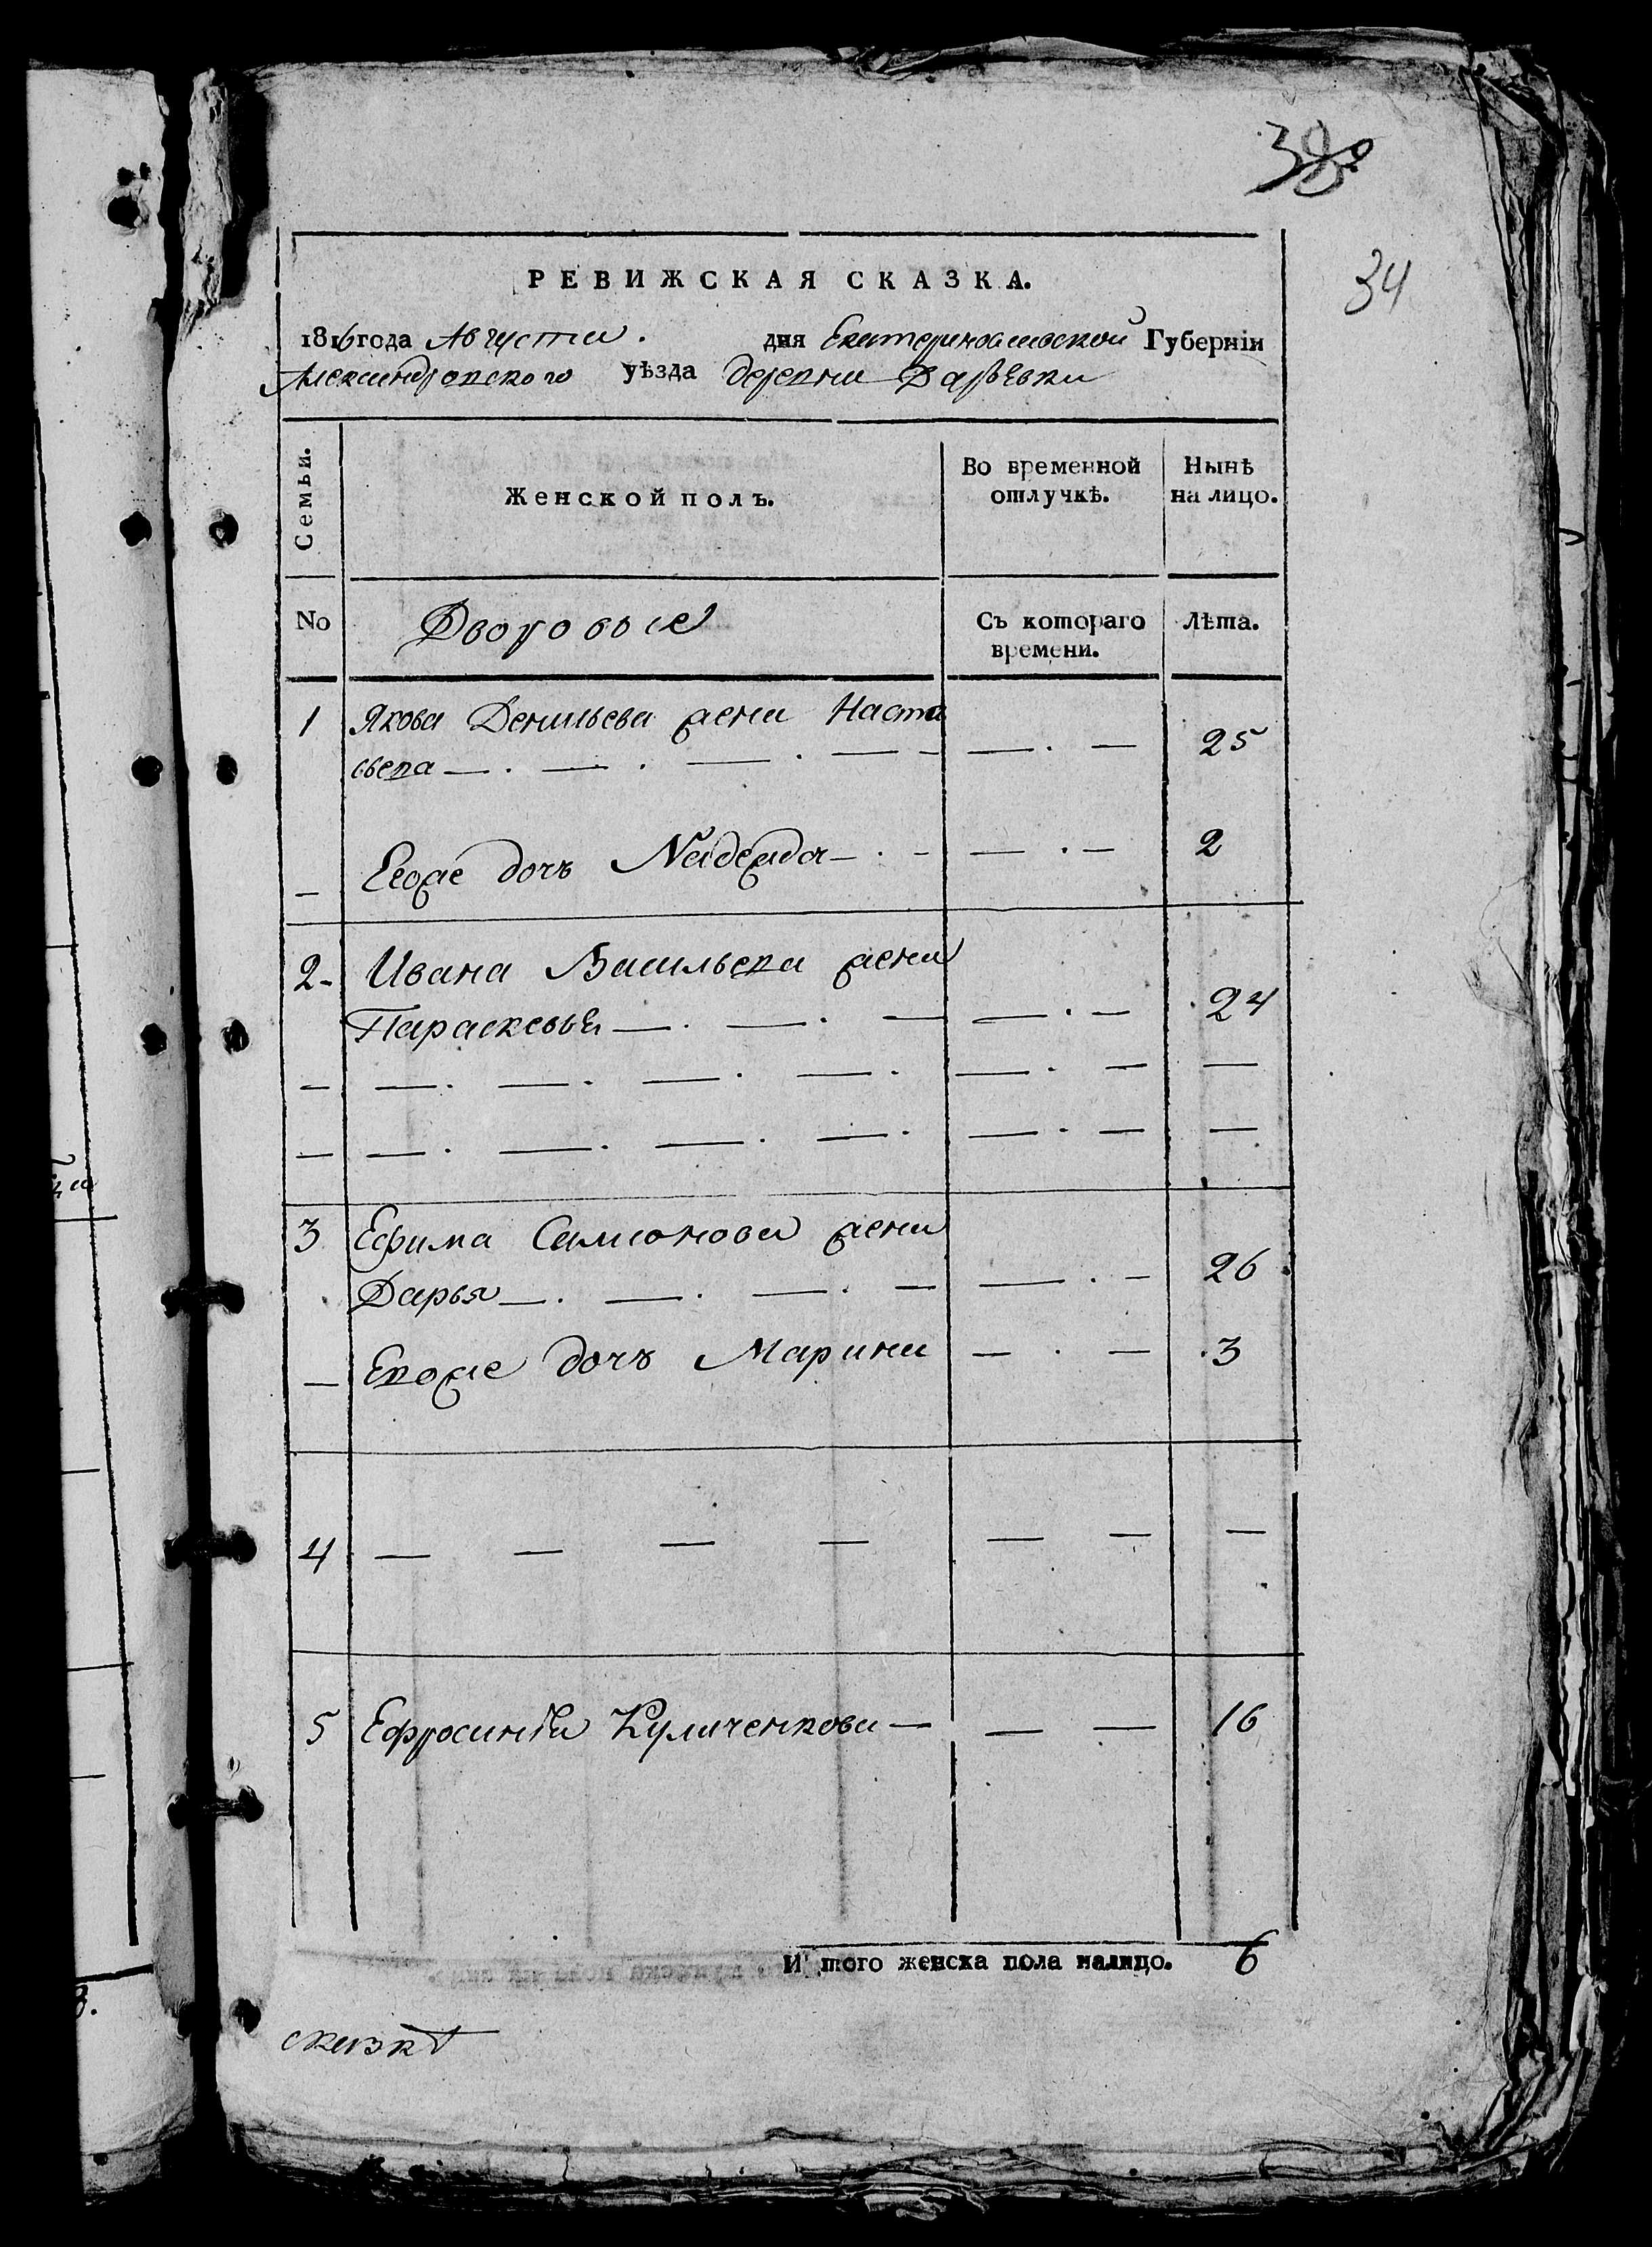 38
34
РЕВИЖСКАЯ СКАЗКА.
1816 года Августа . дня Екатеринославской Губерніи
Александровского уѣзда деревни Дарьевки
Семьи. Женской полъ. Во временной отлучкѣ. Нынѣ на лицо.
No Дворовые Съ котораго времени. Лѣта.
1 Якова Данильева жена Наста
— . — . — . — — — . — 25
— Евоже дочь Надежда — . — — . — 2
2 - Ивана Васильева жена
Параскевья — . — . — — . — 24
— — . — . — . — . — . — —
— — . — . — . — . — . — —
3 Ефима Самсонова жена
Дарья — . — . — . — — . — 26
— Евоже дочъ Марина — . — 3
4 — — — — — — —
5 Ефросинія Куличенкова — — — 16
И того женска пола налицо. 6
сказкѣ